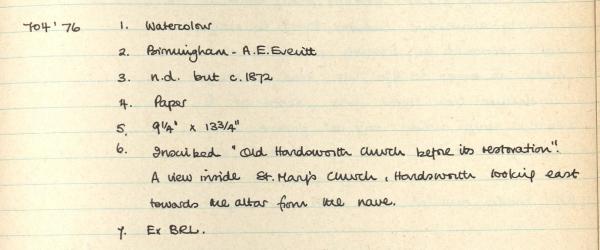 704'76 1. Watercolour
2. Birmingham - A.E.Everitt
3. n.d. but c.1872
4. Paper
5. 9 1/4" x 13 3/4"
6. Inscribed "Old Handsworth Church before its restoration".
A view inside St. Mary's Church, Handsworth looking east
towards the altar from the nave.
7. Ex BRL.